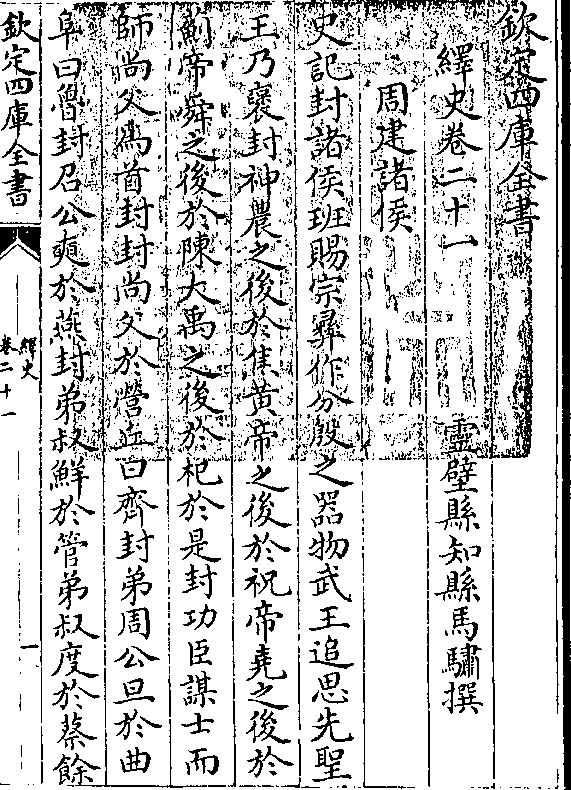 欽定四庫全書
繹史卷二十一
靈壁縣知縣馬驌撰
周建諸侯
史記封諸侯班賜宗彞作分殷之器物武王追思先聖
王乃襃封神農之後於焦黃帝之後於祝帝堯之後於
薊帝舜之後於陳大禹之後於杞於是封功臣謀士而
師尚父爲首封封尚父於營丘曰齊封弟周公旦於曲
阜曰魯封召公奭於燕封弟叔鮮於管弟叔度於蔡餘
欽定四庫全書
繹史
卷二十一
一